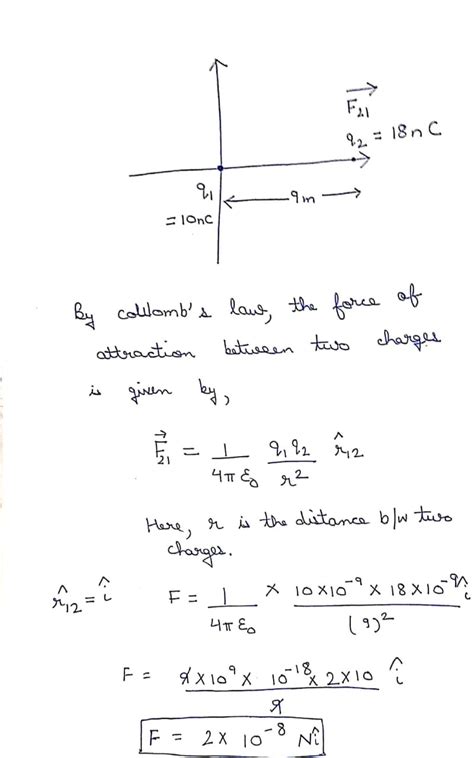 F⃗₂₁
q₂ = 18nC
q₁
= 10nC
9m
By coulomb's law, the force of
attraction between two charges
is given by,
F⃗₂₁ = 1/4πε₀ q₁q₂/r² r̂₁₂
Here, r is the distance b/w two
charges.
r̂₁₂ = î F = 1/4πε₀ × 10×10⁻⁹ × 18×10⁻⁹ î/(9)²
F = 9×10⁹ × 10⁻¹⁸ × 2×10/9 î
F = 2× 10⁻⁸ Nî